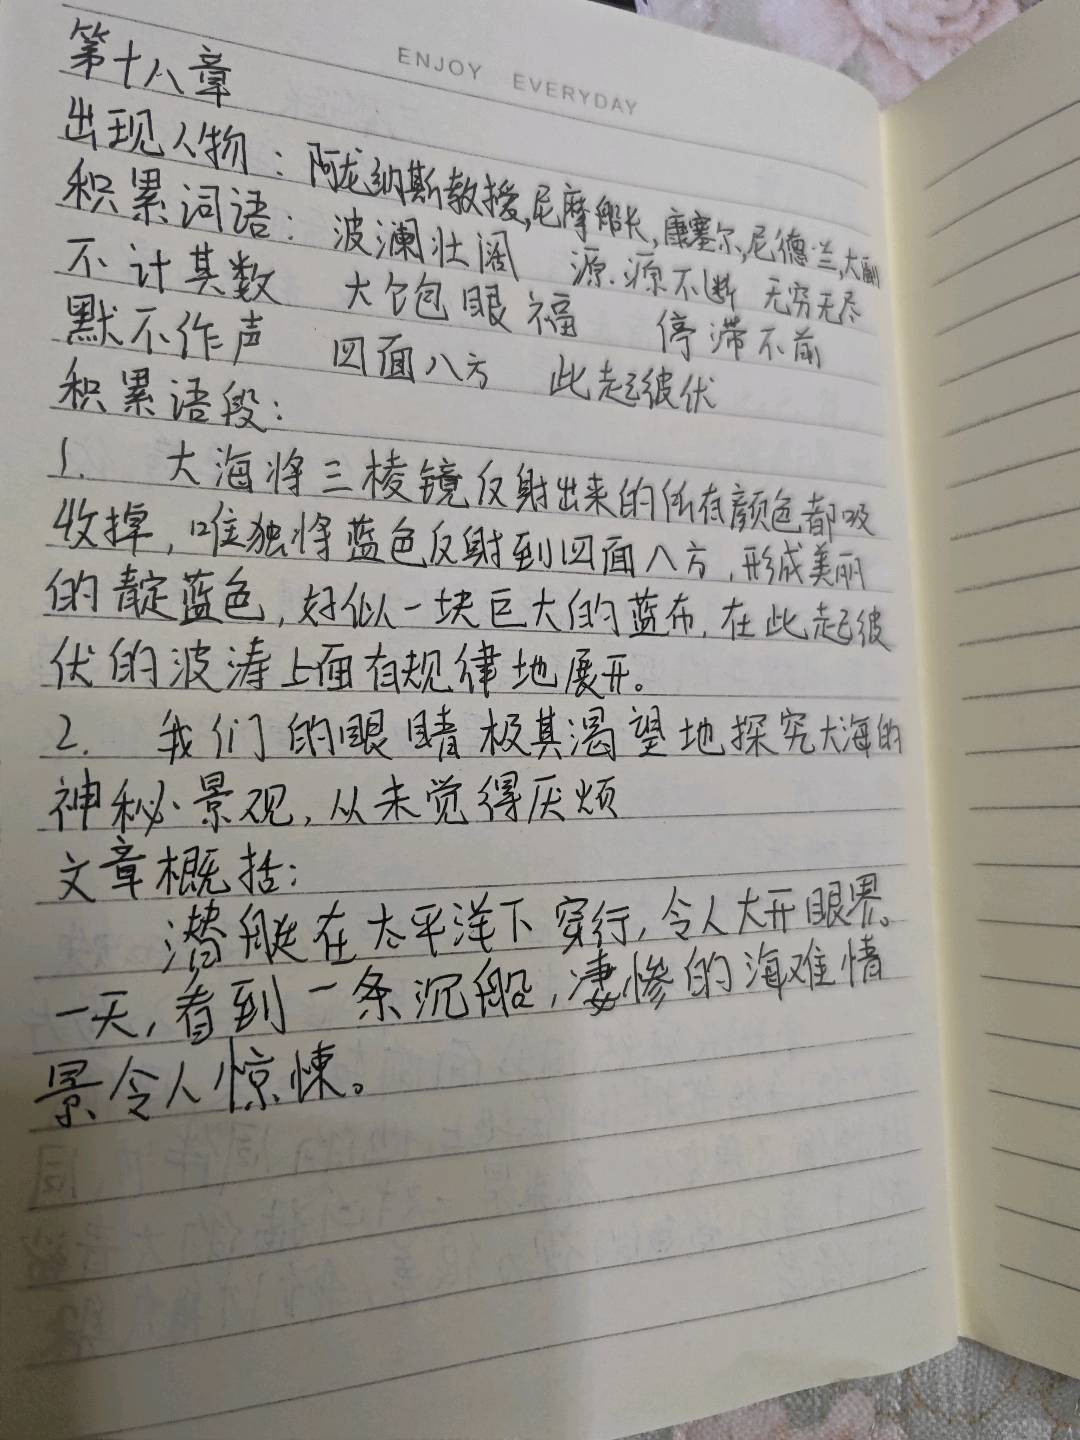 ENJOY EVERYDAY
第十八章
出现人物：阿龙纳斯教授,尼摩船长,康塞尔,尼德·兰,大副
积累词语：波澜壮阔 源源不断 无穷无尽
不计其数 大饱眼福 停滞不前
默不作声 四面八方 此起彼伏
积累语段：
1. 大海将三棱镜反射出来的所有颜色都吸
收掉，唯独将蓝色反射到四面八方,形成美丽
的靛蓝色,好似一块巨大的蓝布,在此起彼
伏的波涛上面有规律地展开。
2. 我们的眼睛极其渴望地探究大海的
神秘景观,从未觉得厌烦
文章概括：
潜艇在太平洋下穿行,令人大开眼界。
一天,看到一条沉船,凄惨的海难情
景令人惊悚。